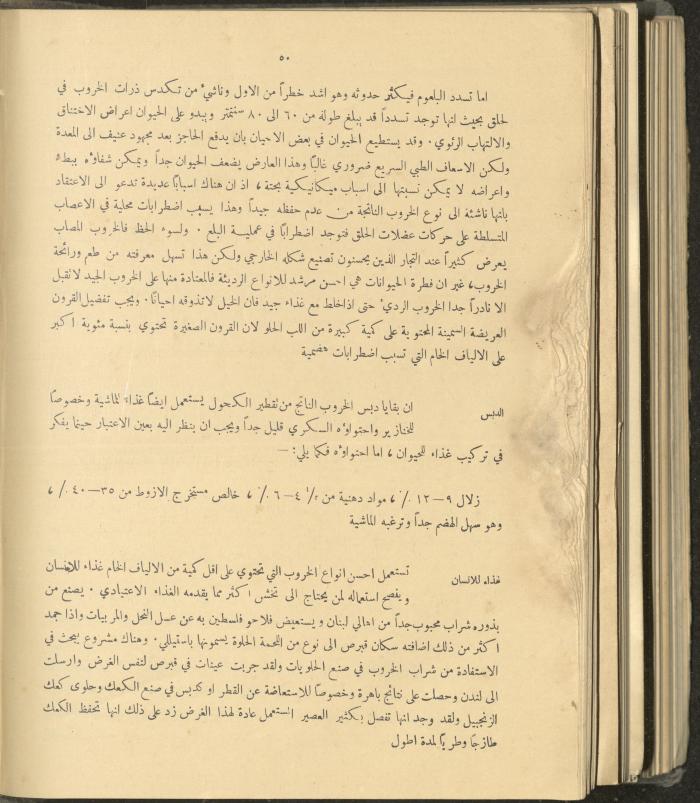 ٥٠
اما تسدد البلعوم فيكثر حدوثه وهو اشد خطراً من الاول وناشئ من تكدس ذرات الخروب في
الحلق بحيث انها توجد تسدداً قد يبلغ طوله من ٦٠ الى ٨٠ سنتمتر ويبدو على الحيوان اعراض الاختناق
والالتهاب الرئوي . وقد يستطيع الحيوان في بعض الاحيان بان يدفع الحاجز بعد مجهود عنيف الى المعدة
ولكن الاسعاف الطبي السريع ضروري غالبًا وهذا العارض يضعف الحيوان جداً ويمكن شفاؤه ببطء
واعراضه لا يمكن نسبتها الى اسباب ميكانيكية بحتة ، اذ ان هناك اسبابًا عديدة تدعو الى الاعتقاد
بانها ناشئة الى نوع الخروب الناتجة من عدم حفظه جيداً وهذا يسبب اضطرابات محلية في الاعصاب
المتسلطة على حركات عضلات الحلق فتوجد اضطرابًا في عملية البلع . ولسوء الحظ فالخروب المصاب
يعرض كثيراً عند التجار الذين يحسنون تصنيع شكله الخارجي ولكن هذا تسهل معرفته من طعم ورائحة
الخروب، غير ان فطرة الحيوانات هي احسن مرشد للانواع الرديئة فالمعتادة منها على الخروب الجيد لا تقبل
الا نادراً جدا الخروب الردي حتى اذا خلط مع غذاء جيد فان الخيل لا تذوقه احيانًا . ويجب تفضيل القرون
العريضة السمينة المحتوية على كمية كبيرة من اللب الحلو لان القرون الصغيرة تحتوي بنسبة مئوية اكبر
على الالياف الخام التي تسبب اضطرابات هضمية
الدبس
ان بقايا دبس الخروب الناتج من تقطير الكحول يستعمل ايضًا غذاء للماشية وخصوصًا
للخنازير واحتواؤه السكري قليل جداً ويجب ان ينظر اليه بعين الاعتبار حينما يفكر
في تركيب غذاء للحيوان ، اما احتواؤه فكما يلي: —
زلال ٩—١٢ ٠/٠ ، مواد دهنية من ½ ٤—٦ ٠/٠ ، خالص مستخرج الازوط من ٣٥—٤٠ ٠/٠ ،
وهو سهل الهضم جداً وترغبه الماشية
غذاء للانسان
تستعمل احسن انواع الخروب التي تحتوي على اقل كمية من الالياف الخام غذاء للانسان
ويفصح استعماله لمن يحتاج الى تخشن اكثر مما يقدمه الغذاء الاعتيادي . يصنع من
بذوره شراب محبوب جداً من اهالي لبنان ويستعيض فلاحو فلسطين به عن عسل النحل والمربيات واذا جمد
اكثر من ذلك اضافته سكان قبرص الى نوع من اللحمة الحلوة يسمونها باستيللي . وهناك مشروع يبحث في
الاستفادة من شراب الخروب في صنع الحلويات ولقد جربت عينات في قبرص لنفس الغرض وارسلت
الى لندن وحصلت على نتائج باهرة وخصوصًا للاستعاضة عن القطر او كدبس في صنع الكعك وحلوى كعك
الزنجبيل ولقد وجد انها تفضل بكثير العصير المستعمل عادة لهذا الغرض زد على ذلك انها تحفظ الكعك
طازجًا وطريًا لمدة اطول